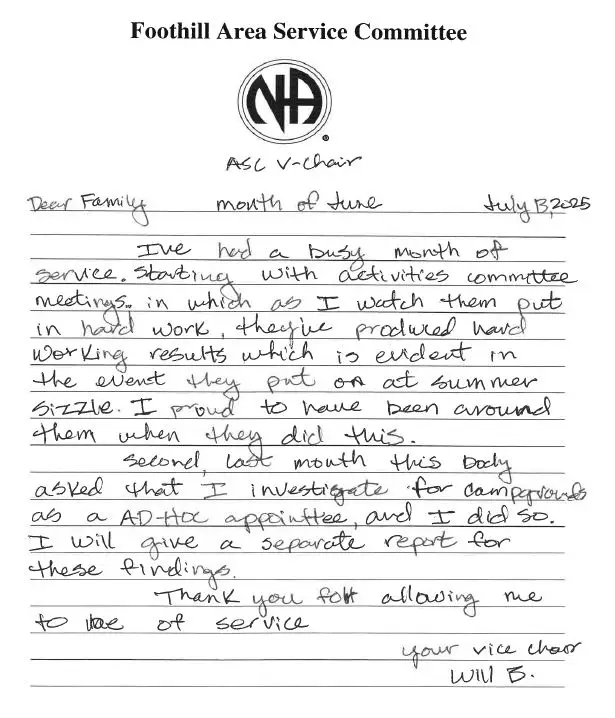 Foothill Area Service Committee
NA
®
ASC V-Chair
Dear Family month of June July 13, 2025
I've had a busy month of
service. Starting with activities committee
meetings. in which as I watch them put
in hard work, they've produced hard
working results which is evident in
the event they put on at summer
sizzle. I proud to have been around
them when they did this.
Second, last month this body
asked that I investigate for campgrounds
as a AD-Hoc appointtee, and I did so.
I will give a separate report for
these findings.
Thank you for allowing me
to be of service
your vice chair
Will B.